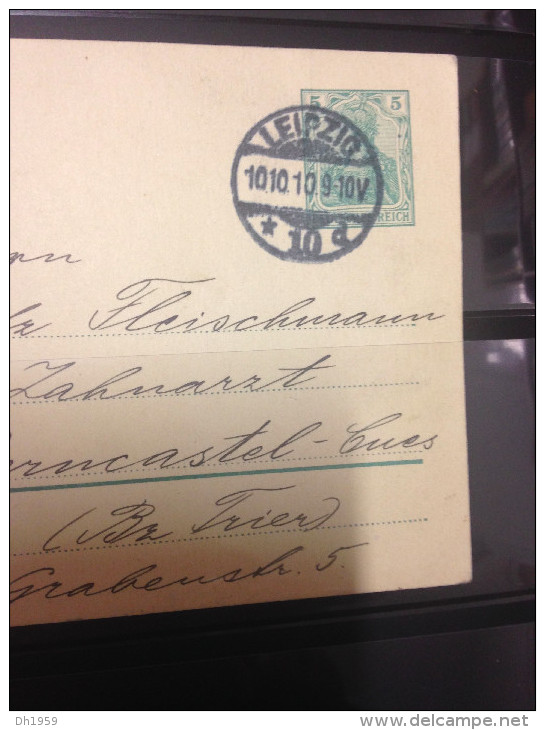 5 5
LEIPZIG
10.10.10.9-10V
* 10 d
REICH
Fleischmann
Zahnarzt
Berncastel-Cues
(Bz Trier)
Grabenstr. 5.
Dh1959
www.delcampe.net